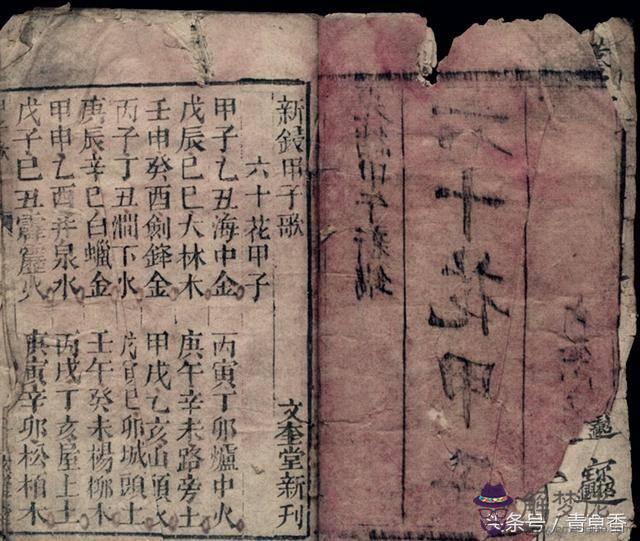 十花甲
甲午新鐫
新鋟甲子歌
六十花甲子 文奎堂新刊
甲子乙丑海中金 丙寅丁卯爐中火
戊辰巳巳大林木 庚午辛未路旁土
壬申癸酉劍鋒金 甲戌乙亥山頭火
丙子丁丑澗下火 戊寅巳卯城頭土
庚辰辛巳白蠟金 壬午癸未楊柳木
甲申乙酉井泉水 丙戌丁亥屋上土
戊子巳丑霹靂火 庚寅辛卯松柏木
解梦
头条号 / 青食香